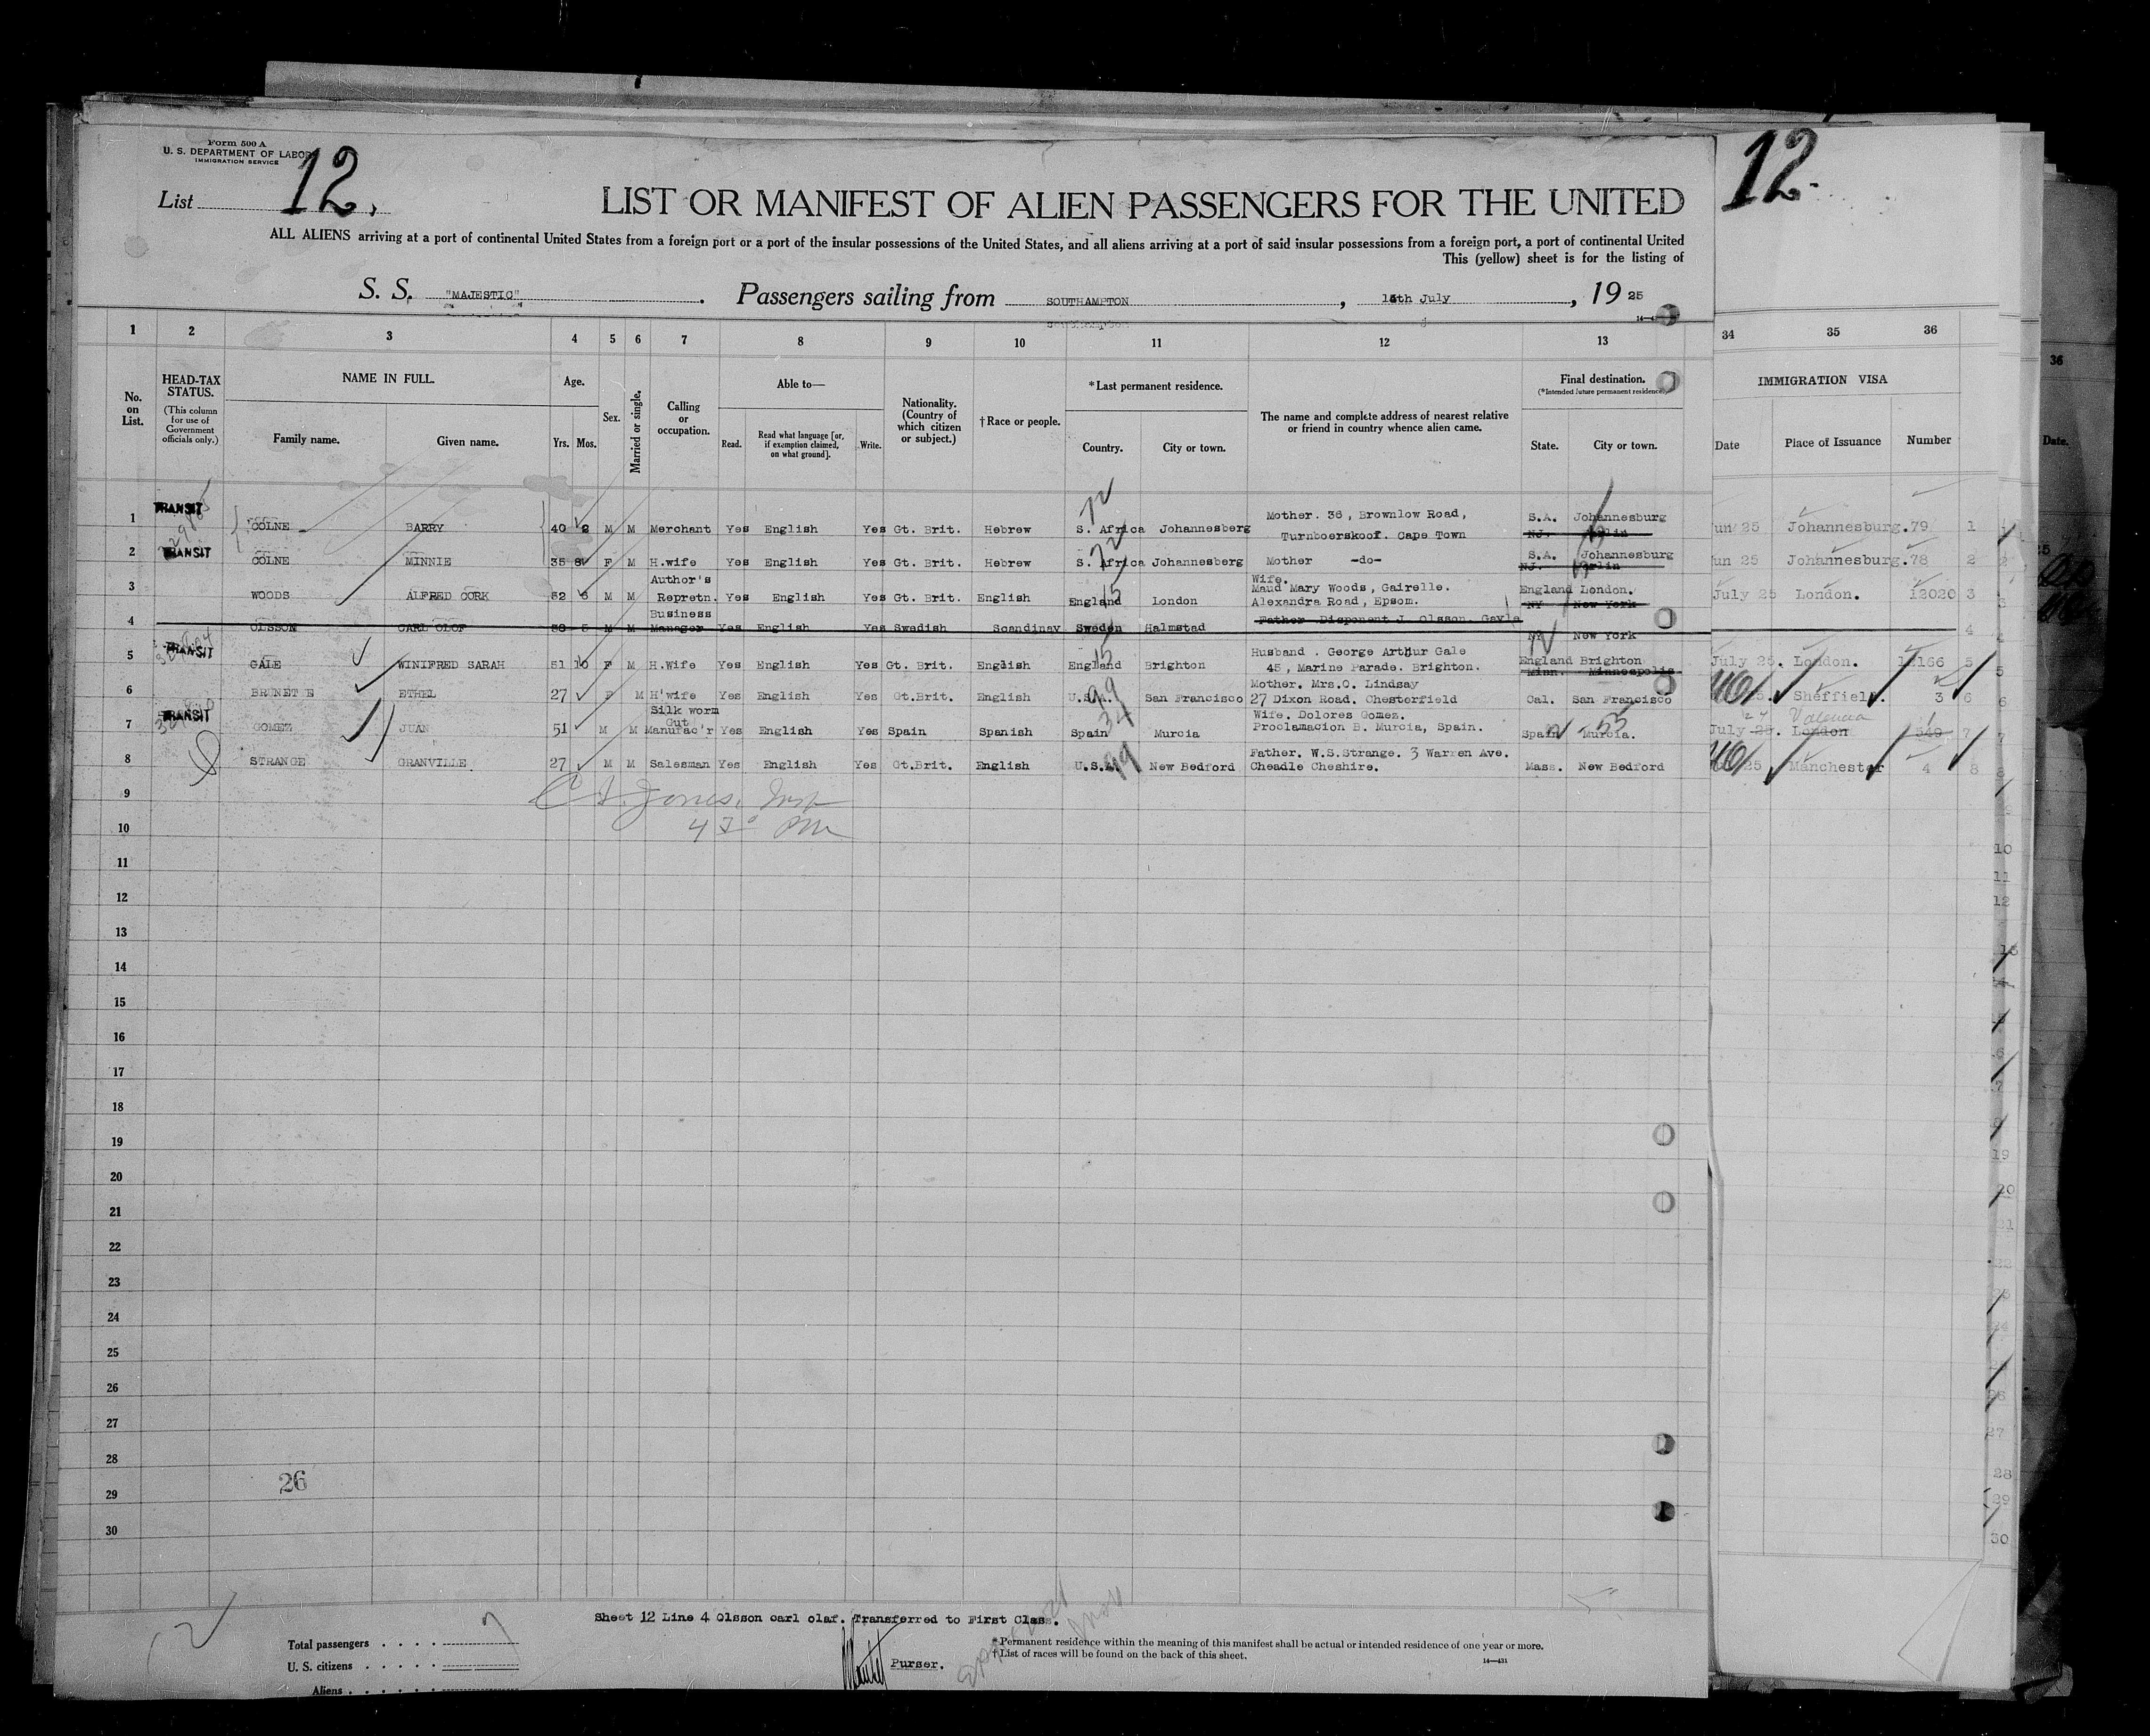 Form 500 A
U. S. DEPARTMENT OF LABOR
IMMIGRATION SERVICE
List 12.
12.
LIST OR MANIFEST OF ALIEN PASSENGERS FOR THE UNITED
ALL ALIENS arriving at a port of continental United States from a foreign port or a port of the insular possessions of the United States, and all aliens arriving at a port of said insular possessions from a foreign port, a port of continental United
This (yellow) sheet is for the listing of
S. S. "MAJESTIC" . Passengers sailing from SOUTHAMPTON , 15th July , 19 25
1 2 3 4 5 6 7 8 9 10 11 12 13 34 35 36
No. on List.
HEAD-TAX STATUS.
(This column for use of Government officials only.)
NAME IN FULL.
Family name. Given name.
Age.
Yrs. Mos.
Sex.
Married or single.
Calling or occupation.
Able to—
Read. Read what language [or, if exemption claimed, on what ground]. Write.
Nationality. (Country of which citizen or subject.)
†Race or people.
*Last permanent residence.
Country. City or town.
The name and complete address of nearest relative or friend in country whence alien came.
Final destination.
(*Intended future permanent residence.)
State. City or town.
IMMIGRATION VISA
Date Place of Issuance Number
36
Date.
1 TRANSIT COLNE BARRY 40 2 M M Merchant Yes English Yes Gt. Brit. Hebrew S. Africa Johannesberg Mother. 36, Brownlow Road, Turnboerskoof. Cape Town S.A. Johannesburg NJ. un 25 Johannesburg. 79 1
2 TRANSIT COLNE MINNIE 35 8 F M H.wife Yes English Yes Gt. Brit. Hebrew S. Africa Johannesberg Mother -do- S.A. Johannesburg NJ. un 25 Johannesburg. 78 2
3 WOODS ALFRED CORK 52 M M Author's Repretn. Yes English Yes Gt. Brit. English England London Wife. Maud Mary Woods, Gairelle. Alexandra Road, Epsom. England London. NY New York July 25 London. 12020 3
4 OLSSON CARL OLOF M M Business Manager Yes English Yes Swedish Scandinav Sweden Halmstad Father Disponent J. Olsson. Gavle NY New York 4
5 TRANSIT GALE WINIFRED SARAH 51 10 F M H.Wife Yes English Yes Gt. Brit. English England Brighton Husband. George Arthur Gale 45, Marine Parade. Brighton. England Brighton Minn. Minneapolis July 25. London. 5
6 BRUNETE ETHEL 27 F M H'wife Yes English Yes Gt.Brit. English U.S.A. San Francisco Mother. Mrs.O. Lindsay 27 Dixon Road. Chesterfield Cal. San Francisco 25. Sheffield. 3 6
7 TRANSIT GOMEZ JUAN 51 M M Silk worm Gut Manufac'r Yes English Yes Spain Spanish Spain Murcia Wife. Dolores Gomez. Proclamacion B. Murcia, Spain. Spain Murcia. July 25. London Valencia 7
8 STRANGE GRANVILLE. 27 M M Salesman Yes English Yes Gt.Brit. English U.S.A. New Bedford Father. W.S.Strange. 3 Warren Ave. Cheadle Cheshire. Mass. New Bedford 25 Manchester 4 8
9
10
11
12
13
14
15
16
17
18
19
20
21
22
23
24
25
26
27
28
29
30
26
Sheet 12 Line 4 Olsson carl olaf. Transferred to First Class.
Purser.
Total passengers 7
U. S. citizens
Aliens
*Permanent residence within the meaning of this manifest shall be actual or intended residence of one year or more.
†List of races will be found on the back of this sheet.
14—431